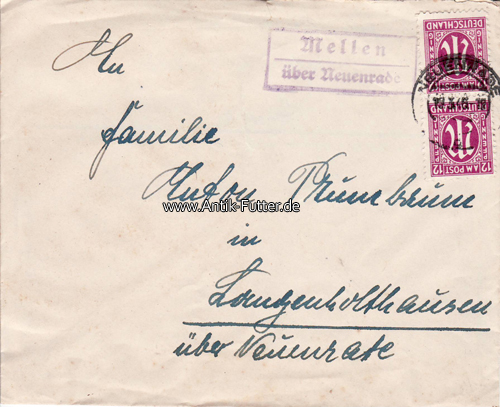 Mellen
über Neuenrade
DEUTSCHLAND
NEUENRADE
12 AM POST 12
An
Familie
Anton
www.Antik-Futter.de
in
Langenholthausen
über Neuenrade